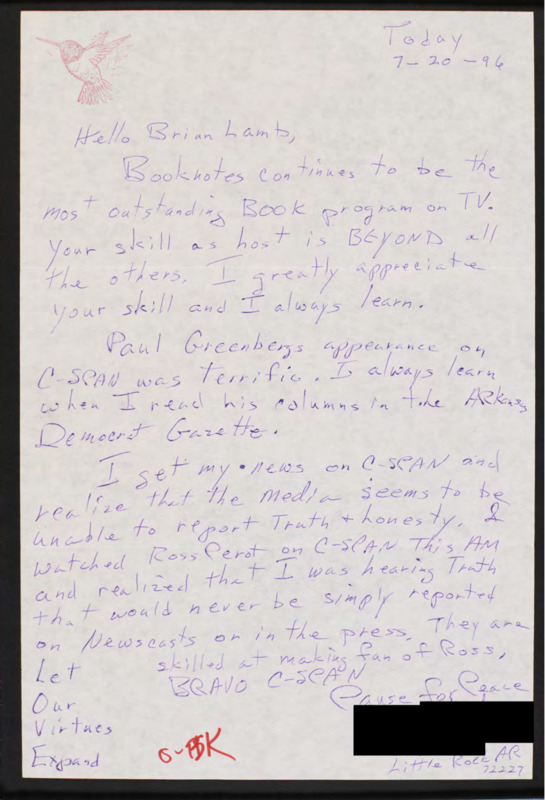 Today
7-20-96
Hello Brian Lamb,
Booknotes continues to be the
most outstanding BOOK program on TV.
Your skill as host is BEYOND all
the others. I greatly appreciate
your skill and I always learn.
Paul Greenbergs appearance on
C-SPAN was terrific. I always learn
when I read his columns in the ARkansas
Democrat Gazette.
I get my news on C-SPAN and
realize that the media seems to be
unable to report Truth + honesty. I
watched Ross Perot on C-SPAN This AM
and realized that I was hearing Truth
that would never be simply reported
on Newscasts or in the press. They are
skilled at making fun of Ross.
BRAVO C-SPAN
Pause for Peace
Let
Our
Virtues
Expand
Little Rock AR
72227